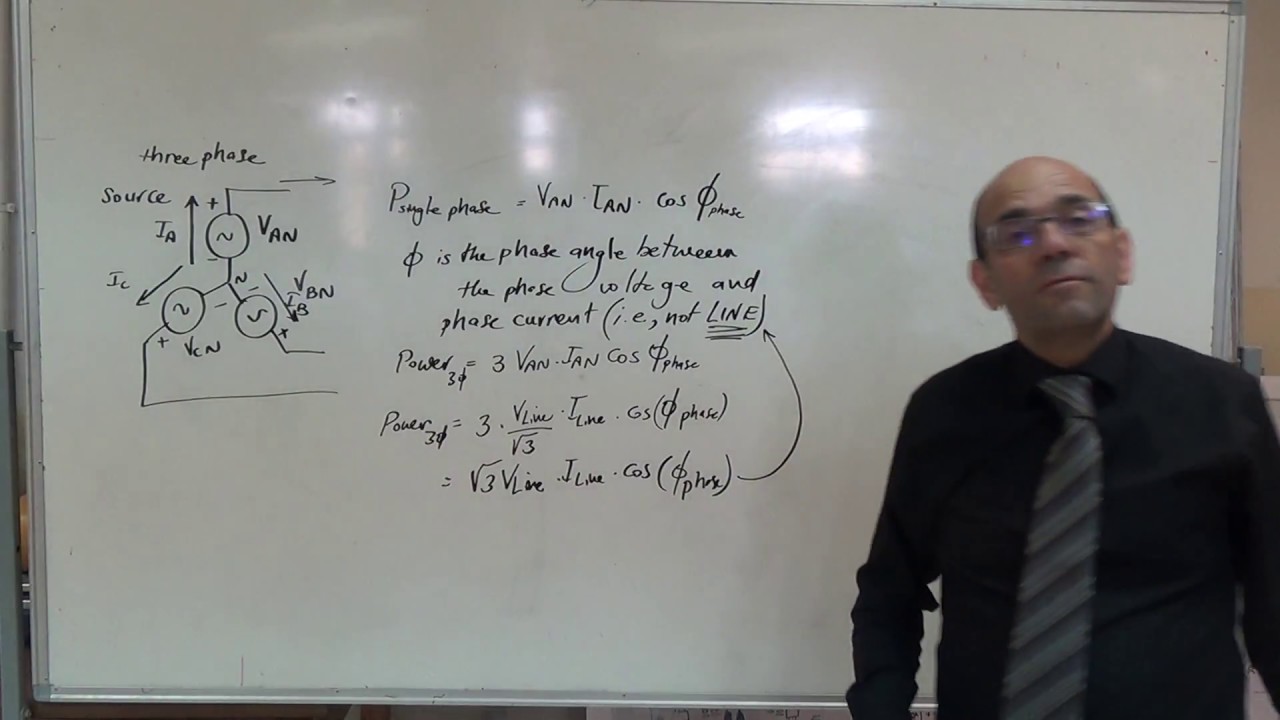 three phase
Source
+
I_A
~
V_AN
I_C
N
V_BN
I_B
~
~
+
V_CN
+
P_single phase = V_AN · I_AN · cos ϕ_phase
ϕ is the phase angle between
the phase voltage and
phase current (i.e, not LINE)
Power_3ϕ = 3 V_AN · I_AN Cos ϕ_phase
Power_3ϕ = 3 · V_Line/√3 · I_Line · Cos(ϕ_phase)
= √3 V_Line · I_Line · Cos(ϕ_phase)